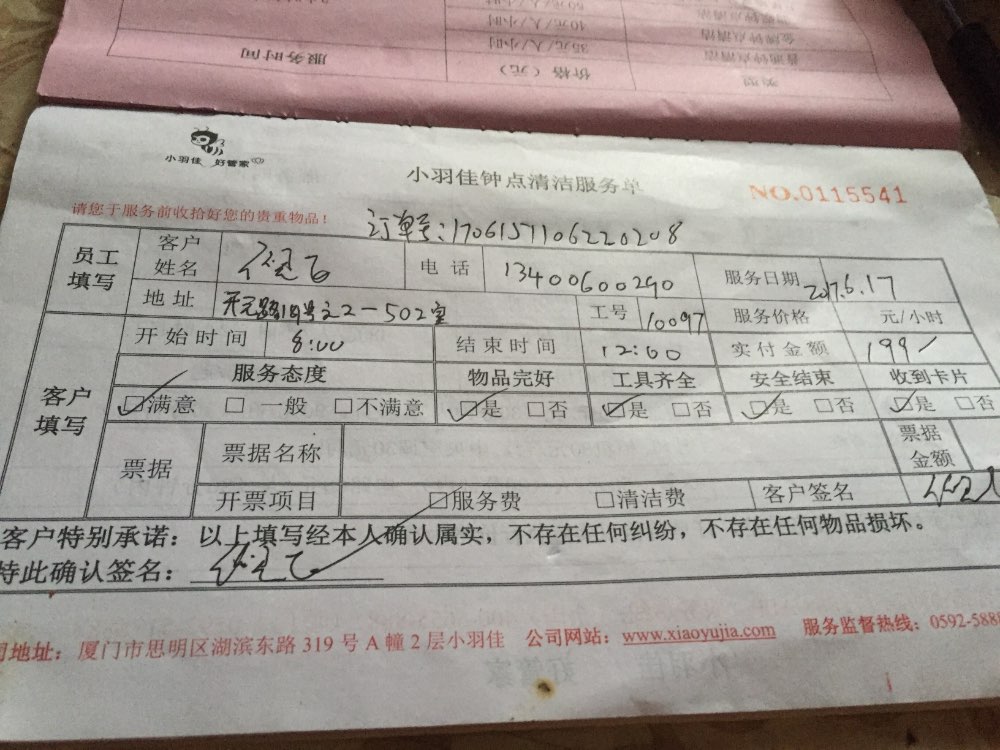 服务时间
价格（元）
类型
35元/人/小时
普通钟点清洁
40元/人/小时
金牌钟点清洁
小羽佳 好管家
小羽佳钟点清洁服务单
NO.0115541
请您于服务前收拾好您的贵重物品！
订单号:1706157106220208
员工填写
客户姓名
电话 13400600290
服务日期 2017.6.17
地址 开元路 之2-502室
工号 10097
服务价格 元/小时
客户填写
开始时间 8:00
结束时间 12:00
实付金额 199
服务态度 物品完好 工具齐全 安全结束 收到卡片
☑满意 □一般 □不满意 ☑是 □否 ☑是 □否 ☑是 □否 ☑是 □否
票据
票据名称
票据金额
开票项目 □服务费 □清洁费 客户签名
客户特别承诺：以上填写经本人确认属实，不存在任何纠纷，不存在任何物品损坏。
特此确认签名：
地址：厦门市思明区湖滨东路 319 号 A 幢 2 层小羽佳 公司网站：www.xiaoyujia.com 服务监督热线：0592-588